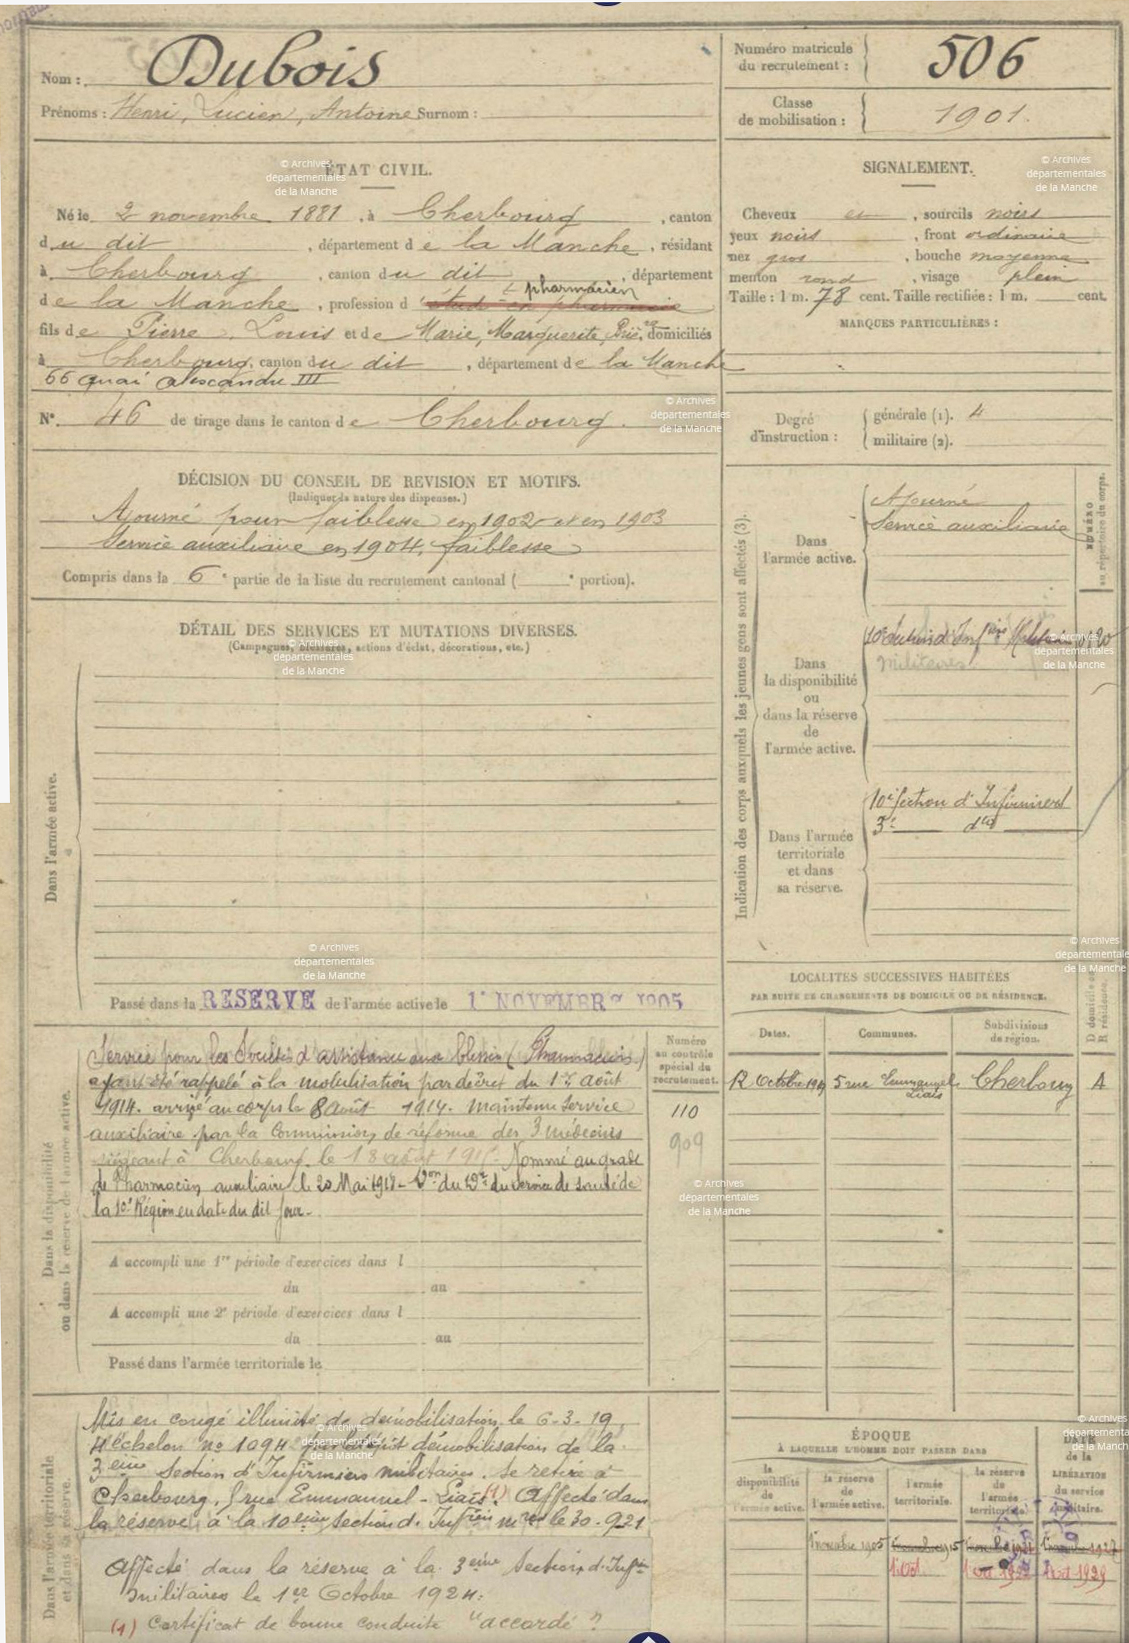 Nom : Dubois
Prénoms : Henri, Lucien, Antoine Surnom :
Numéro matricule du recrutement : 506
Classe de mobilisation : 1901.
ÉTAT CIVIL.
Né le 2 novembre 1881, à Cherbourg, canton
du dit, département de la Manche, résidant
à Cherbourg, canton du dit, département
pharmacien
de la Manche, profession d étud en pharmacie
fils de Pierre Louis et de Marie, Marguerite, domiciliés
à Cherbourg, canton du dit, département de la Manche
66 quai Alexandre III
N° 46 de tirage dans le canton de Cherbourg.
SIGNALEMENT.
Cheveux et, sourcils noirs
yeux noirs, front ordinaire
nez gros, bouche moyenne
menton rond, visage plein
Taille : 1 m. 78 cent. Taille rectifiée : 1 m. cent.
MARQUES PARTICULIÈRES :
Degré d'instruction :
générale (1). 4
militaire (2).
DÉCISION DU CONSEIL DE REVISION ET MOTIFS.
(Indiquer la nature des dispenses.)
Ajourné pour faiblesse en 1902 et en 1903
Service auxiliaire en 1904, faiblesse
Compris dans la 6e partie de la liste du recrutement cantonal ( e portion).
DÉTAIL DES SERVICES ET MUTATIONS DIVERSES.
(Campagnes, blessures, actions d'éclat, décorations, etc.)
Dans l'armée active.
Passé dans la RESERVE de l'armée active le 1r NOVEMBRE 1905
Indication des corps auxquels les jeunes gens sont affectés (3).
NUMÉRO au répertoire du corps.
Dans l'armée active.
Ajourné
Service auxiliaire
Dans la disponibilité ou dans la réserve de l'armée active.
militaires
Dans l'armée territoriale et dans sa réserve.
10e Section d'Infirmiers
3e do
LOCALITÉS SUCCESSIVES HABITÉES
PAR SUITE DE CHANGEMENTS DE DOMICILE OU DE RÉSIDENCE.
Dates. Communes. Subdivisions de région. D domicile ou R résidence.
5 rue Emmanuel Liais Cherbourg
Dans la disponibilité ou dans la réserve de l'armée active.
Numéro au contrôle spécial du recrutement.
110
909
Service pour les Sociétés d'assistance aux blessés (Pharmacien)
ayant été rappelé à la mobilisation par décret du 1er août
1914. arrivé au corps le 8 août 1914. Maintenu service
auxiliaire par la Commission de réforme des 3 médecins
siégeant à Cherbourg le 18 août 191 . Nommé au grade
de Pharmacien auxiliaire le 20 Mai 1918 - du service de santé de
la 10e Région en date du dit jour.
A accompli une 1re période d'exercices dans l
du au
A accompli une 2e période d'exercices dans l
du au
Passé dans l'armée territoriale le
Dans l'armée territoriale et dans sa réserve.
Mis en congé illimité de démobilisation le 6-3-19,
4e échelon no 1094 dépôt démobilisation de la
3eme Section d'Infirmiers militaires. Se retire à
Cherbourg, 5 rue Emmanuel-Liais (1) Affecté dans
la réserve à la 10eme Section d'
Affecté dans la réserve à la 3eme Section d'Infirs
militaires le 1er Octobre 1924.
(1) Certificat de bonne conduite "accordé".
ÉPOQUE
À LAQUELLE L'HOMME DOIT PASSER DANS
la disponibilité de l'armée active. la réserve de l'armée active. l'armée territoriale. la réserve de l'armée territoriale. DATE de la LIBÉRATION du service militaire.
© Archives départementales de la Manche
© Archives départementales de la Manche
© Archives départementales de la Manche
© Archives départementales de la Manche
© Archives départementales de la Manche
© Archives départementales de la Manche
© Archives départementales de la Manche
© Archives départementales de la Manche
© Archives départementales de la Manche
© Archives départementales de la Manche